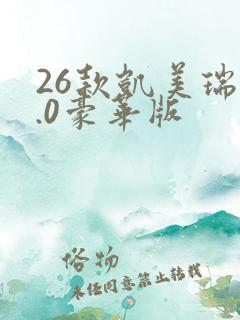 26款凯美瑞
.0豪华版
俗物
未经同意禁止转载